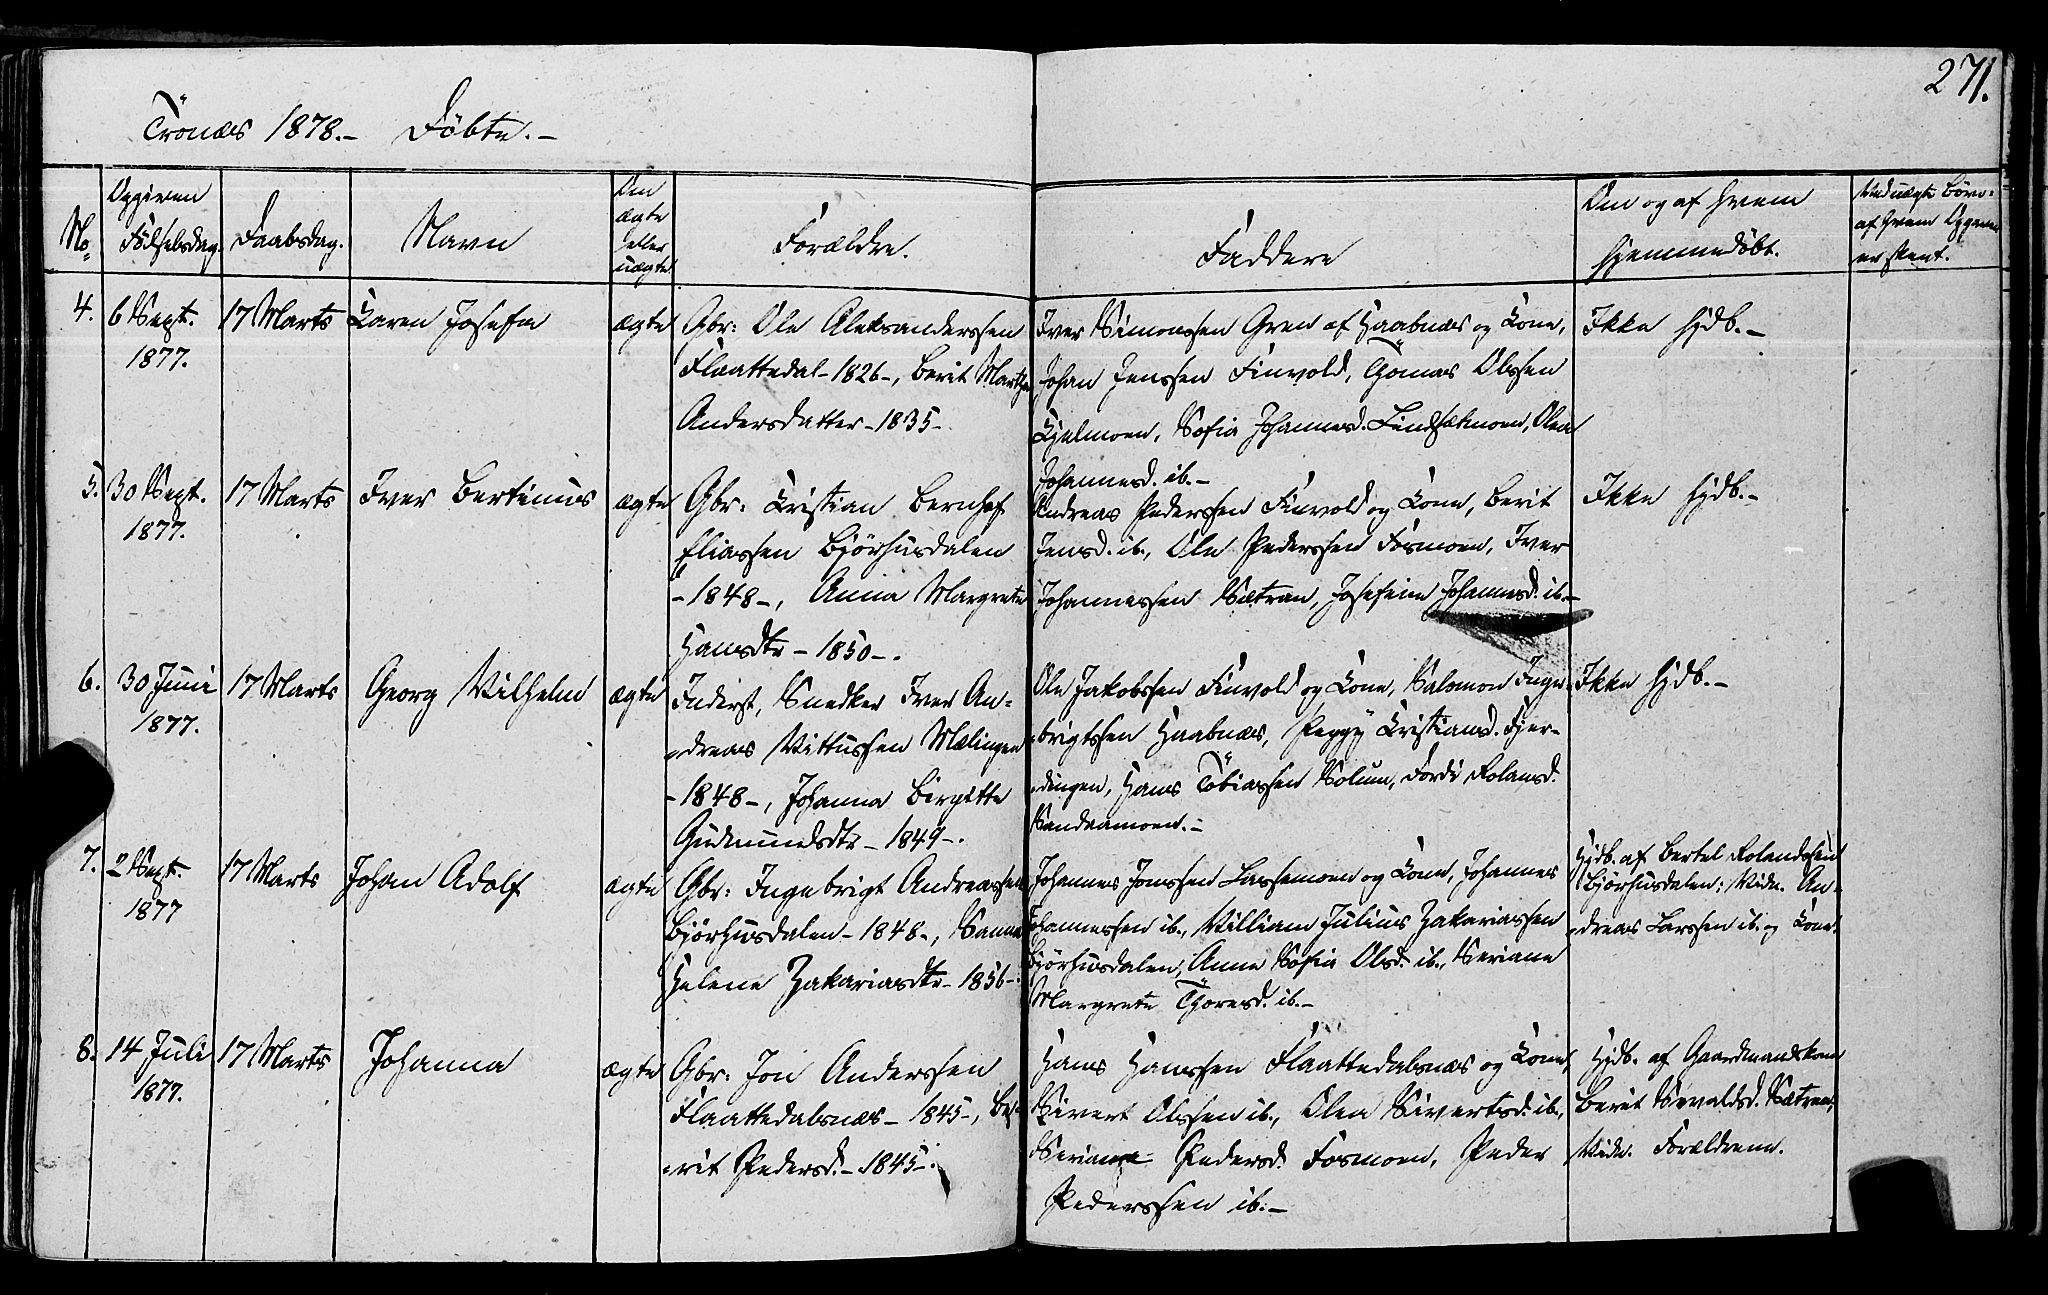 271.
Trönæs 1878.- Döbte.-
No
Opgiven
Fødselsdag.
Daabsdag.
Navn
Om
ægte
eller
uægte
Forældre.
Faddere
Om og af hvem
hjemmedöbt.
Ved uægte Børn:
af hvem Opgaven
er skeet.
4. 6 Sept.
1877.
17 Marts
Karen Josefa
ægte
Gbr: Ole Aleksanderssen
Flaattedal -1826-, Berit Martha
Andersdatter -1835-
Iver Simonssen Gren af Haabnæs og Kone,
Johan Jenssen Finvold, Thomas Olssen
Kjelmoen, Sofia Johannesd. Lindsetmoen, Olea
Johannesd. ib.-
Ikke hjdb.-
5. 30 Sept.
1877.
17 Marts
Iver Bertinus
ægte
Gbr: Kristian Bernhof
Eliassen Björhusdalen
-1848-, Anna Margrete
Hansdtr -1850-.
Andreas Pederssen Finvold og Kone, Berit
Jensd. ib., Ole Pederssen Fosmoen, Iver
Johannessen Sætran, Josefine Johannesd. ib.-
Ikke hjdb.-
6. 30 Juni
1877.
17 Marts
Georg Vilhelm
ægte
Inderst, Snedker Iver An-
dreas Vittussen Mælingen
-1848-, Johanna Birgitte
Gudmundsdtr -1849-.
Ole Jakobssen Finvold og Kone, Salomon Inge-
brigtssen Haabnæs, Peggy Kristiansd. Fjer-
dingen, Hans Tobiassen Solum, Fordi Rolansd.
Sandaamoen.-
Ikke hjdb.-
7. 2 Sept.
1877
17 Marts
Johan Adolf
ægte
Gbr: Ingebrigt Andreassen
Björhusdalen -1848-, Sanna
Helene Zakariasdtr -1856-.
Johannes Jonssen Lassemoen og Kone, Johannes
Johannessen ib., Villiam Julius Zakariassen
Björhusdalen, Anne Sofie Olsd. ib., Seriane
Margrete Thoresd. ib.-
Hjdb. af Bertel Rolandssen
Björhusdalen; Vidn. An-
dreas Larssen ib. og Kone.
8. 14 Juli
1877.
17 Marts
Johanna
ægte
Gbr: Jon Anderssen
Flaattedalsnæs -1845-, Be-
rit Pedersd. -1845-.
Hans Hanssen Flaattedalsnæs og Kone,
Sivert Olssen ib., Olea Sivertsd. ib.,
Seriane Pedersd. Fosmoen, Peder
Pederssen ib.-
Hjdb. af Gaardmandskone
Berit Sivaldsd. Sætran,
Vidn. Forældrene.